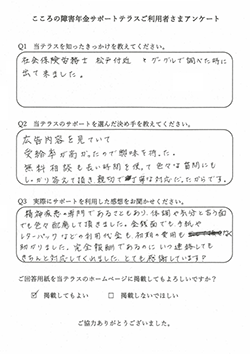 こころの障害年金サポートテラスご利用者さまアンケート
Q1 当テラスを知ったきっかけを教えてください。
社会保険労務士 松戸付近 とグーグルで調べた時に
出て来ました。
Q2 当テラスのサポートを選んだ決め手を教えてください。
広告内容を見ていて
受給率が高かったので興味を持った。
無料相談も長い時間を使って色々な質問にも
しっかり答えて頂き、親切で丁寧な対応だったからです。
Q3 実際にサポートを利用した感想をお聞かせください。
精神疾患の専門であることもあり、体調や気分など言う面
でも色々配慮して頂きました。金銭面でも手紙や
レターパックなどの利用代金も、初期の費用も
助かりました。完全報酬であるのにいつ連絡しても
きちんと対応してくれました。とても感謝しています。
ご回答用紙を当テラスのホームページに掲載してもよろしいですか?
掲載してもよい 掲載しないでほしい
ご協力ありがとうございました。